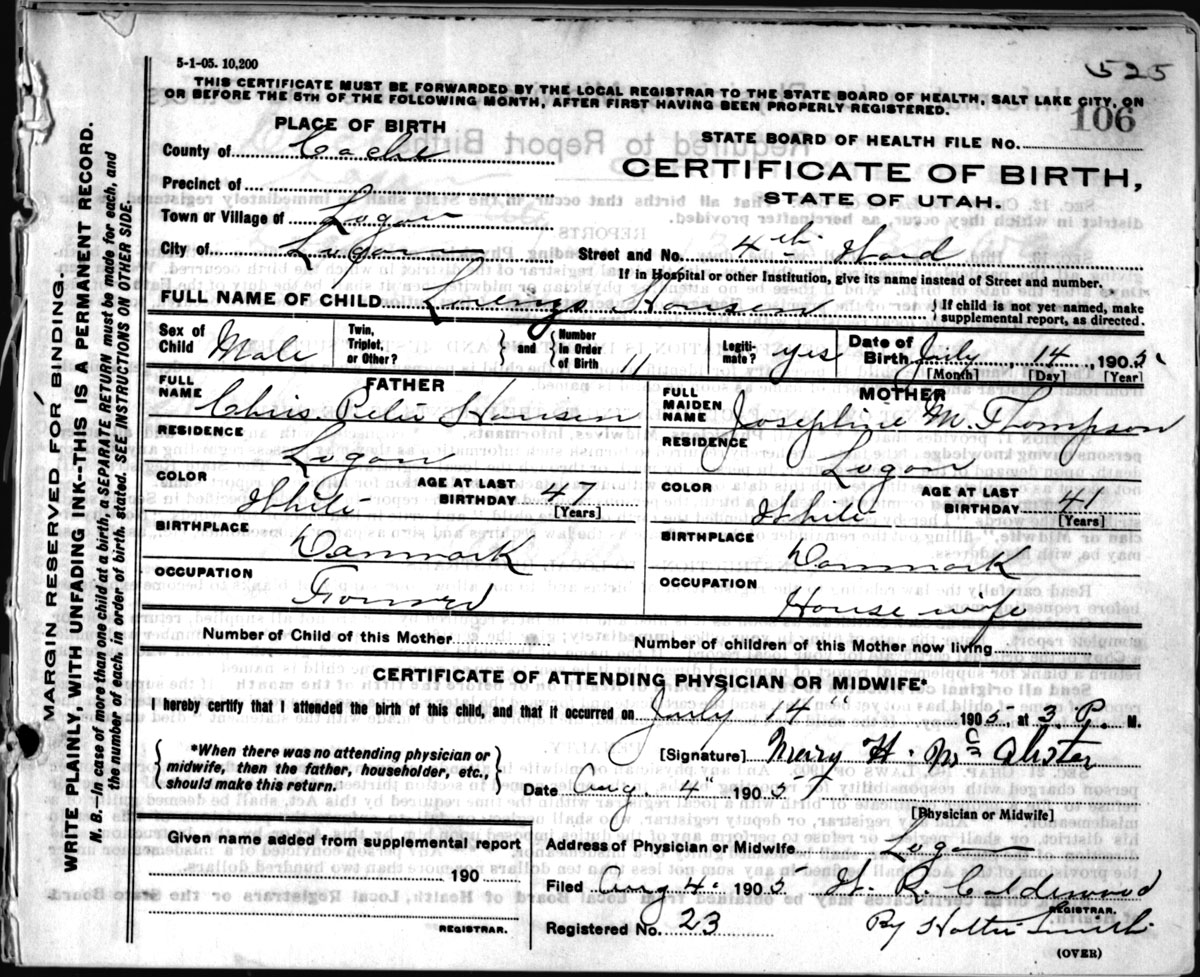 5-1-05. 10,200
525
THIS CERTIFICATE MUST BE FORWARDED BY THE LOCAL REGISTRAR TO THE STATE BOARD OF HEALTH, SALT LAKE CITY, ON
OR BEFORE THE 5TH OF THE FOLLOWING MONTH, AFTER FIRST HAVING BEEN PROPERLY REGISTERED.
106
PLACE OF BIRTH
STATE BOARD OF HEALTH FILE No.
County of Cache
CERTIFICATE OF BIRTH,
Precinct of
STATE OF UTAH.
Town or Village of Logan
City of Logan Street and No. 4th Ward
If in Hospital or other Institution, give its name instead of Street and number.
FULL NAME OF CHILD Lorenzo Hansen } If child is not yet named, make
supplemental report, as directed.
Sex of Child Male Twin, Triplet, or Other? } and { Number in Order of Birth 11 Legiti-mate? yes Date of Birth July 14, 1905
[Month] [Day] [Year]
FATHER MOTHER
FULL NAME Chris. Peter Hansen FULL MAIDEN NAME Josephine M. Thompson
RESIDENCE Logan RESIDENCE Logan
COLOR White AGE AT LAST BIRTHDAY 47 [Years] COLOR White AGE AT LAST BIRTHDAY 41 [Years]
BIRTHPLACE Danmark BIRTHPLACE Danmark
OCCUPATION Farmer OCCUPATION House wife
Number of Child of this Mother Number of children of this Mother now living
CERTIFICATE OF ATTENDING PHYSICIAN OR MIDWIFE*
I hereby certify that I attended the birth of this child, and that it occurred on July 14 1905, at 3 P. M.
{ *When there was no attending physician or
midwife, then the father, householder, etc.,
should make this return. }
[Signature] Mary H. McAlister
Date Aug. 4" 1905
[Physician or Midwife]
Given name added from supplemental report
Address of Physician or Midwife Logan
190
Filed Aug 4. 1905 W. R. Calderwood
REGISTRAR.
REGISTRAR.
Registered No. 23 By Smith
(OVER)
MARGIN RESERVED FOR BINDING.
WRITE PLAINLY, WITH UNFADING INK--THIS IS A PERMANENT RECORD.
N. B.--In case of more than one child at a birth, a SEPARATE RETURN must be made for each, and
the number of each, in order of birth, stated. SEE INSTRUCTIONS ON OTHER SIDE.